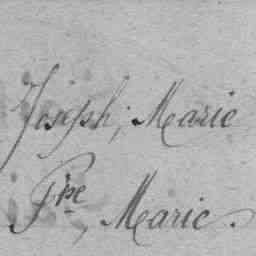 Joseph, Marie
Pre, Marie.